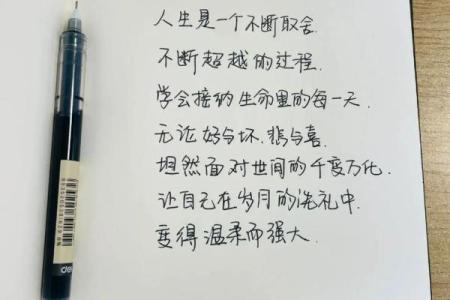 人生是一个不断取舍.
不断超越的过程.
学会接纳生命里的每一天.
无论好与坏.悲与喜.
坦然面对世间的千变万化.
让自己在岁月的洗礼中.
变得温柔而强大.